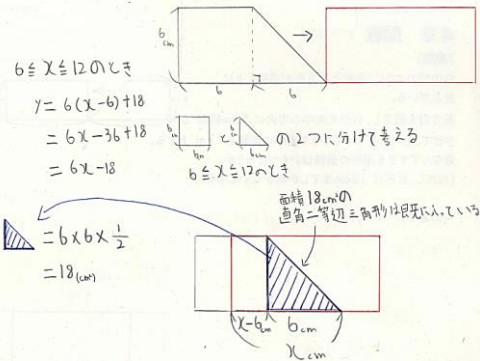 6cm
6
6
6≦x≦12のとき
y=6(x-6)+18
=6x-36+18
=6x-18
と
の2つに分けて考える
6≦x≦12のとき
面積18cm²の
直角二等辺三角形は既に入っている
=6×6×1/2
=18(cm²)
x-6cm
6cm
xcm